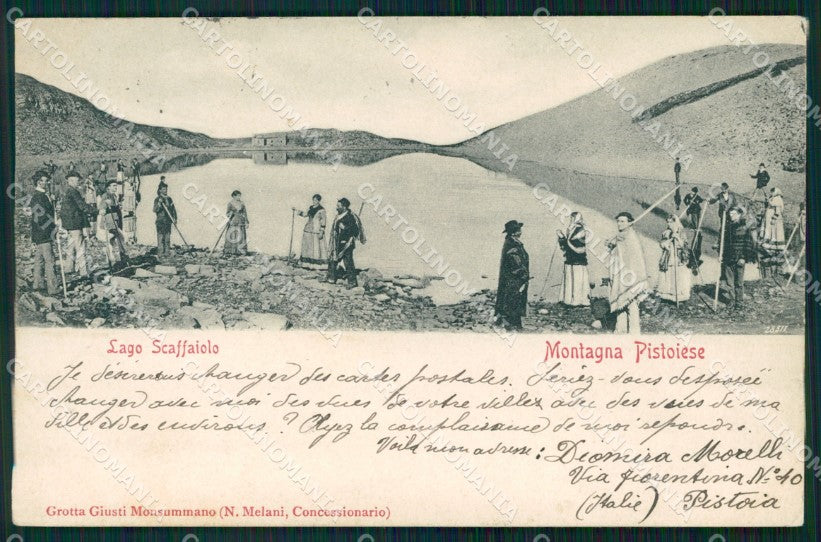 28577
Lago Scaffaiolo
Montagna Pistoiese
Je désirerais changer des cartes postales. Seriez-vous desposeé
changer avec moi des vues de votre villez avec des vuies de ma
ville et des environs? Ayez la complaisance de moi repondre.
Voilà mon adresse: Diomira Morelli
Via Fiorentina N.º 10
(Italie) Pistoia
Grotta Giusti Monsummano (N. Melani, Concessionario)
CARTOLINOMANIA